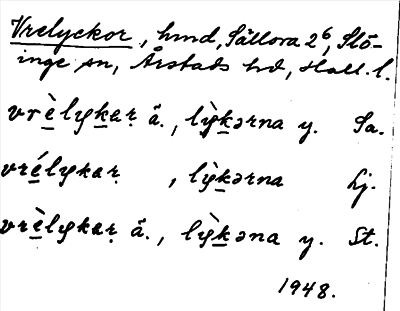 Vrelyckor, hmd, Sällora 2⁶, Slö-
inge sn, Årstads hd, Hall. l.
vrè̱lyḵaṛ ä., lỳḵərna y. Sa.
vré̱lykaṛ , lỳḵərna Lj.
vrè̱lykaṛ ä., lỳḵəna y. St.
1948.